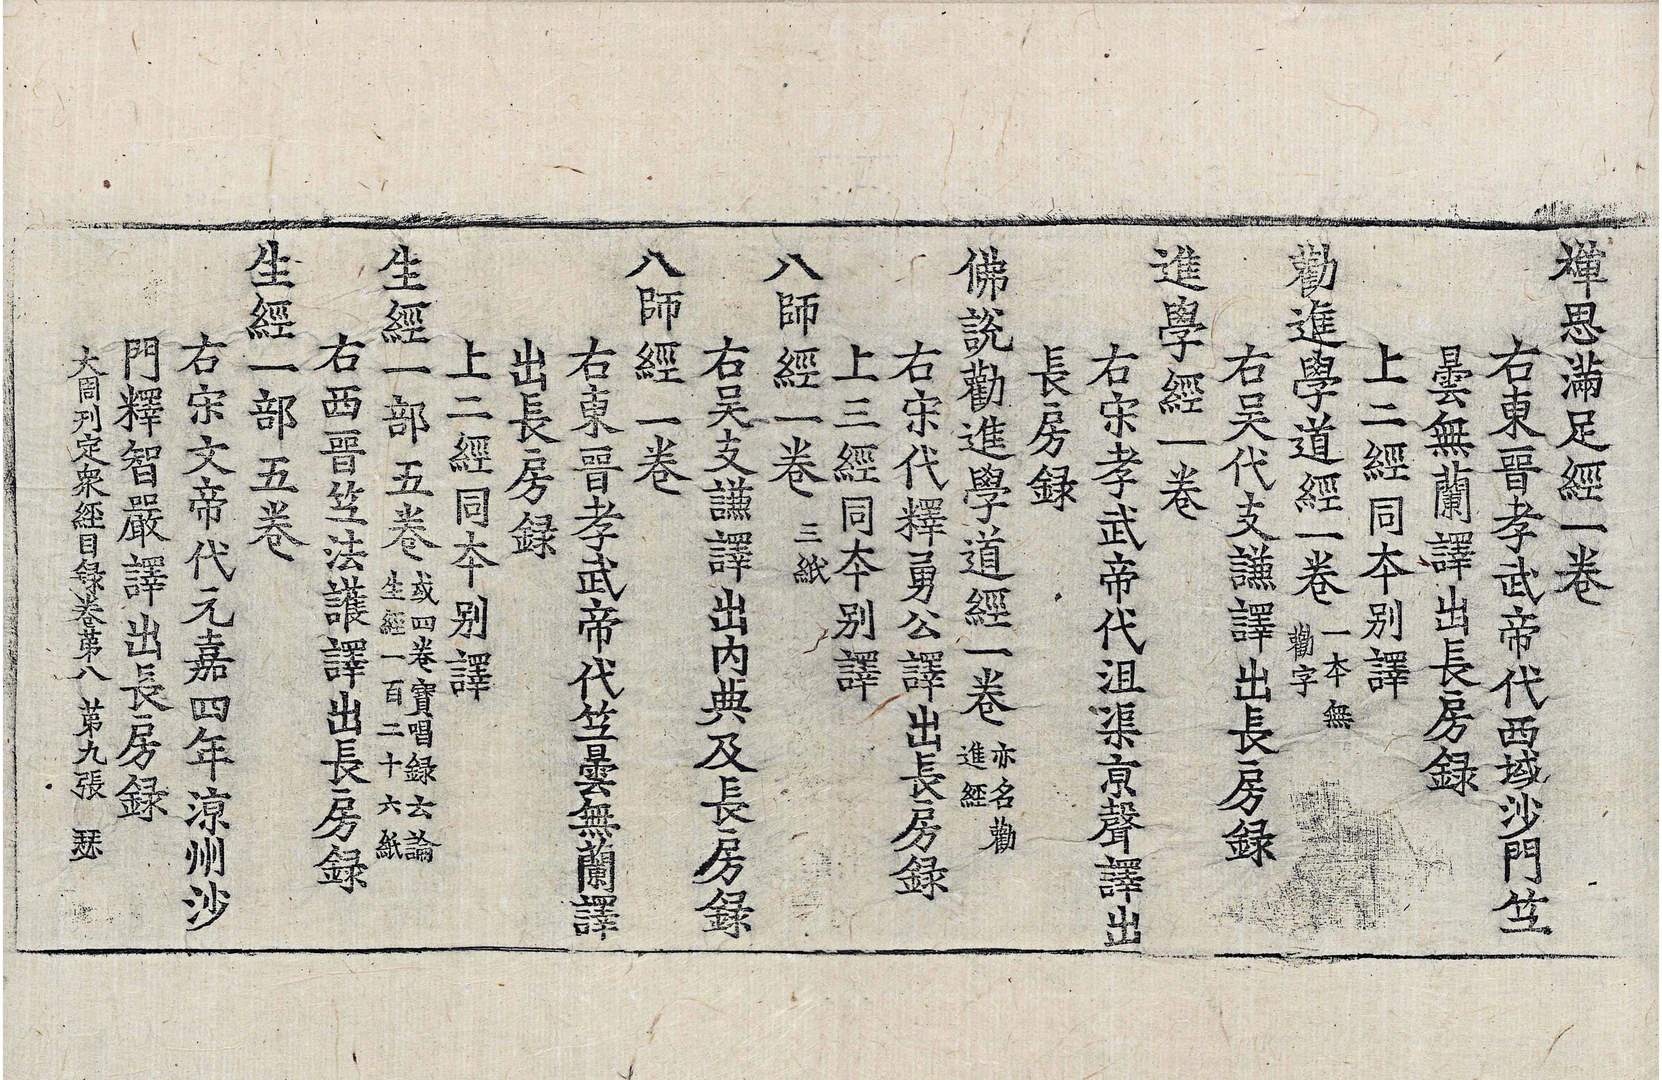 禪思滿足經一卷
右東晉孝武帝代西域沙門竺
曇無蘭譯出長房録
上二經同夲别譯
勸進學道經一卷 一本無勸字
右吴代支謙譯出長房録
進學經一卷
右宋孝武帝代沮渠京聲譯出
長房録
佛說勸進學道經一卷 亦名勸進經
右宋代釋勇公譯出長房録
上三經同夲别譯
八師經一卷 三紙
右吴支謙譯出内典及長房録
八師經一卷
右東晉孝武帝代竺曇無蘭譯
出長房録
上二經同夲别譯
生經一部五卷 或四卷寶唱録云論生經一百二十六紙
右西晉竺法護譯出長房録
生經一部五卷
右宋文帝代元嘉四年涼州沙
門釋智嚴譯出長房録
大周刋定衆經目録卷苐八 苐九張 瑟